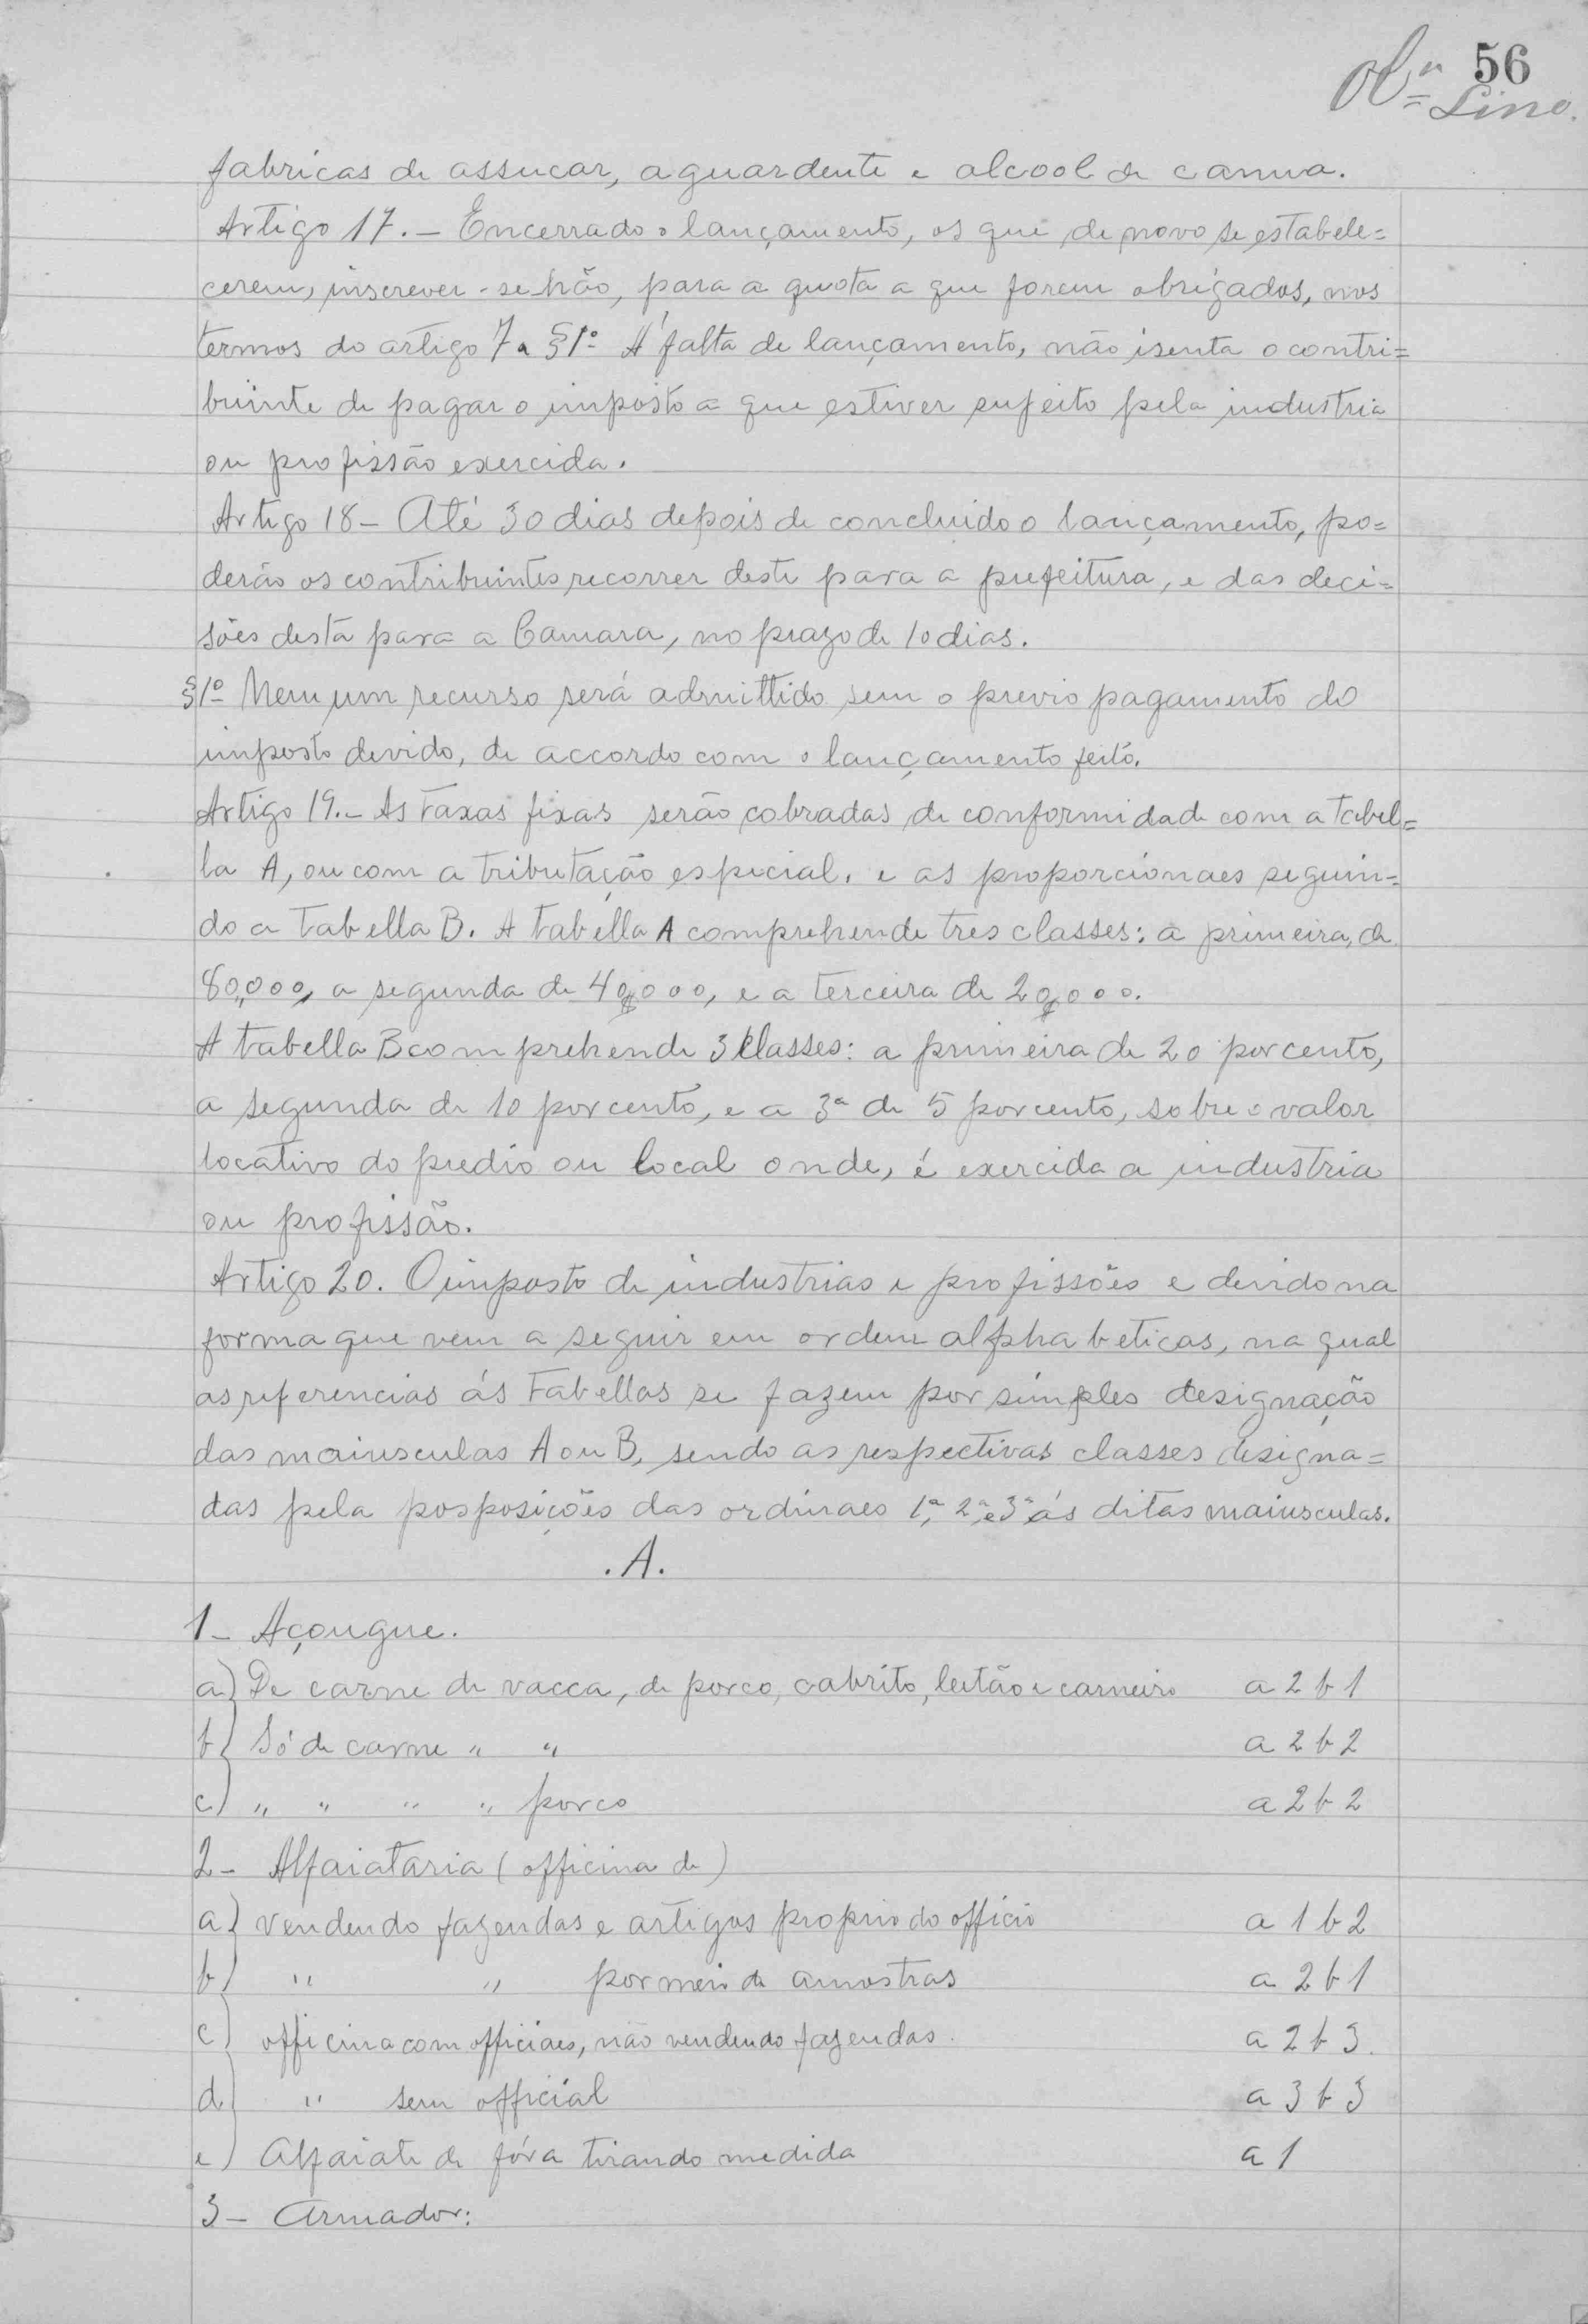 56
Lino.
fabricas de assucar, aguardente e alcool de canna.
Artigo 17. – Encerrado o lançamento, os que de novo se estabele=
cerem, inscrever-se-hão, para a quota a que forem obrigados, nos
termos do artigo 7. §1º A falta de lançamento, não isenta o contri=
buinte de pagar o imposto a que estiver sujeito pela industria
ou profissão exercida.
Artigo 18 – Até 30 dias depois de concluido o lançamento, po=
derão os contribuintes recorrer deste para a prefeitura, e das deci=
sões desta para a Camara, no prazo de 10 dias.
§1º Nem um recurso será admittido sem o previo pagamento do
imposto devido, de accordo com o lançamento feito.
Artigo 19. – As taxas fixas serão cobradas de conformidade com a tabel=
la A, ou com a tributação especial, e as proporcionaes seguin=
do a tabella B. A tabella A comprehende tres classes: a primeira, de
80,000, a segunda de 40$000, e a terceira de 20$000.
A tabella B comprehende 3 classes: a primeira de 20 por cento,
a segunda de 10 por cento, e a 3ª de 5 por cento, sobre o valor
locativo do predio ou local onde, é exercida a industria
ou profissão.
Artigo 20. O imposto de industrias e profissões e devido na
forma que vem a seguir em ordem alphabeticas, na qual
as referencias ás Tabellas se fazem por simples designação
das maiusculas A ou B, sendo as respectivas classes designa=
das pela posposições das ordinaes 1ª, 2ª e 3ª ás ditas maiusculas.
.A.
1 – Açougue.
a) De carne de vacca, de porco, cabrito, leitão e carneiro a 2 b 1
b) Só de carne " " a 2 b 2
c) " " " " porco a 2 b 2
2 – Alfaiataria (officina de)
a) vendendo fazendas e artigos proprio do officio a 1 b 2
b) " " por meio de amostras a 2 b 1
c) officina com officiaes, não vendendo fazendas. a 2 b 3.
d) " sem official a 3 b 3
e) Alfaiate de fóra tirando medida a 1
3 – Armador: